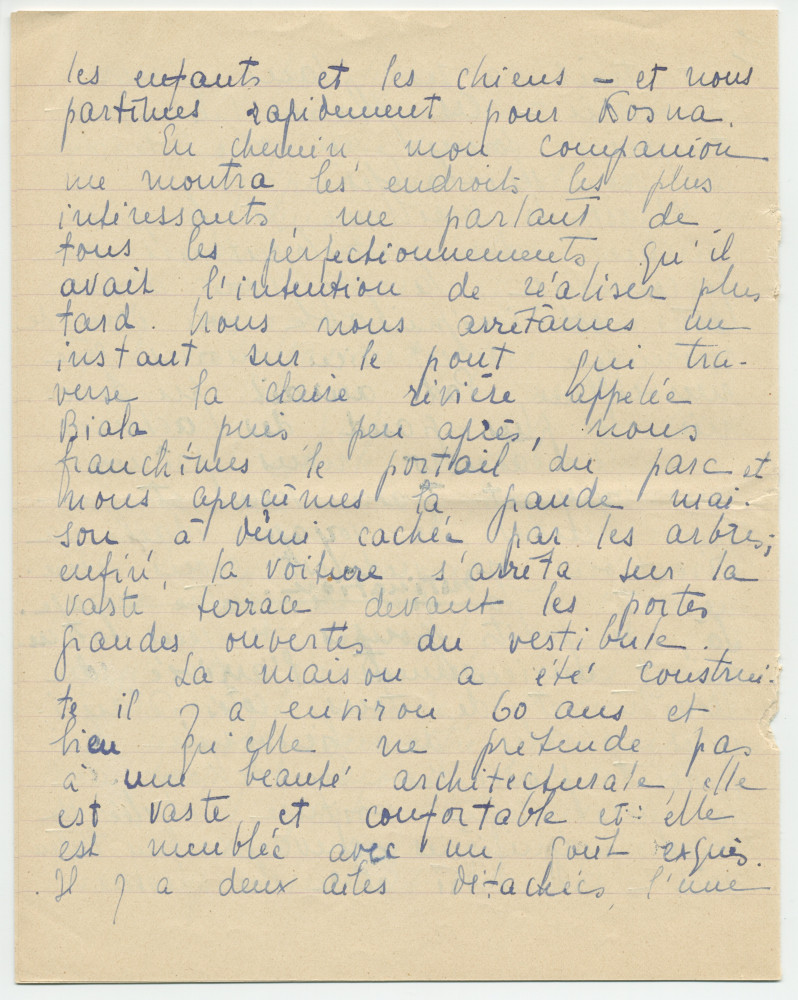 les enfants et les chiens - et nous
partîmes rapidement pour Kosna.
En chemin, mon companion
me montra les endroits les plus
intéressants, me parlant de
tous les perfectionnements qu'il
avait l'intention de réaliser plus
tard. Nous nous arrêtâmes un
instant sur le pont qui tra-
verse la claire rivière appelée
Biala puis peu après, nous
franchîmes le portail du parc et
nous aperçûmes la grande mai-
son à demi cachée par les arbres;
enfin, la voiture s'arrêta sur la
vaste terrace devant les portes
grandes ouvertes du vestibule.
La maison a été construi-
te il y a environ 60 ans et
bien qu'elle ne prétende pas
à une beauté architecturale, elle
est vaste et confortable et elle
est meublée avec un goût exquis.
Il y a deux ailes détachées, l'une